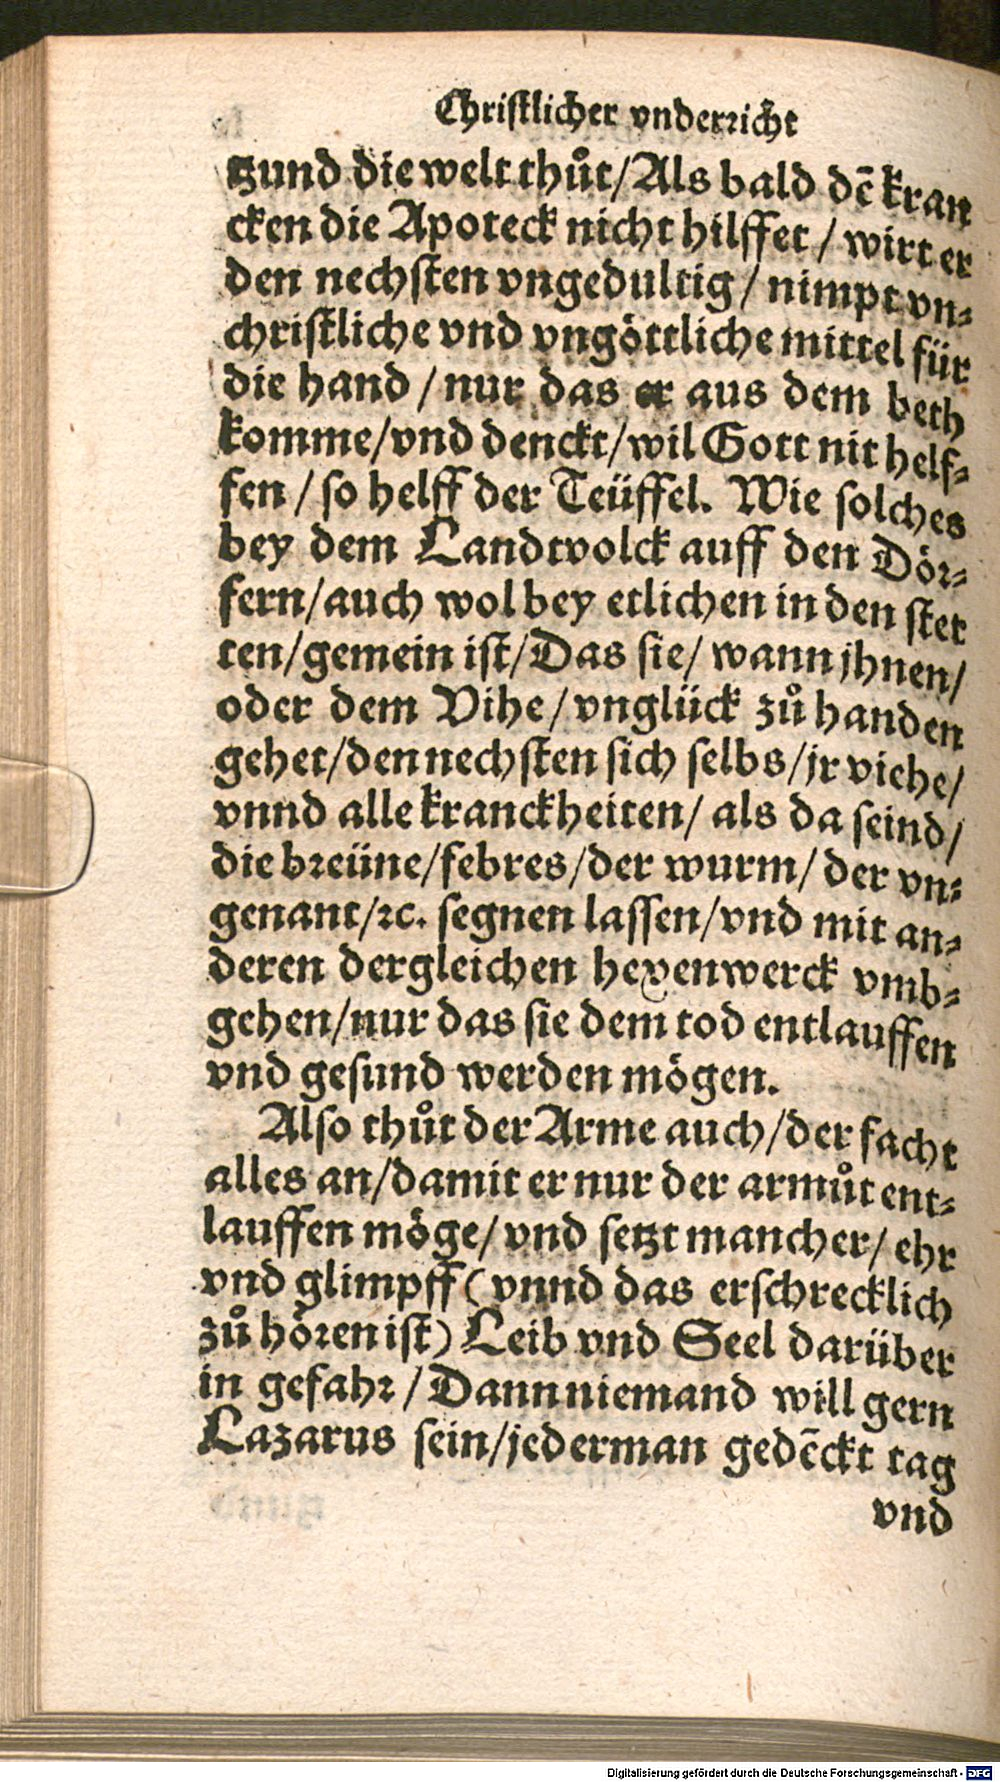 Christlicher vnderricht
tzund die welt thůt/Als bald dē kran
cken die Apoteck nicht hilffet / wirt er
den nechsten vngedultig / nimpt vn⸗
christliche vnd vngöttliche mittel für
die hand / nur das er aus dem beth
komme/vnd denckt/wil Gott nit helf⸗
fen / so helff der Teüffel. Wie solches
bey dem Landtvolck auff den Dör⸗
fern/auch wol bey etlichen in den stet
ten/gemein ist/Das sie/ wann jhnen/
oder dem Vihe / vnglück zů handen
gehet/den nechsten sich selbs/jr viehe/
vnnd alle kranckheiten/ als da seind/
die breüne/febres/der wurm/ der vn⸗
genant/ꝛc. segnen lassen/vnd mit an⸗
deren dergleichen hexenwerck vmb⸗
gehen/nur das sie dem tod entlauffen
vnd gesund werden mögen.
Also thůt der Arme auch/der facht
alles an/damit er nur der armůt ent⸗
lauffen möge/ vnd setzt mancher/ ehr
vnd glimpff ( vnnd das erschrecklich
zů hören ist) Leib vnd Seel darüber
in gefahr / Dann niemand will gern
Lazarus sein/jederman gedēckt tag
vnd
Digitalisierung gefördert durch die Deutsche Forschungsgemeinschaft - DFG